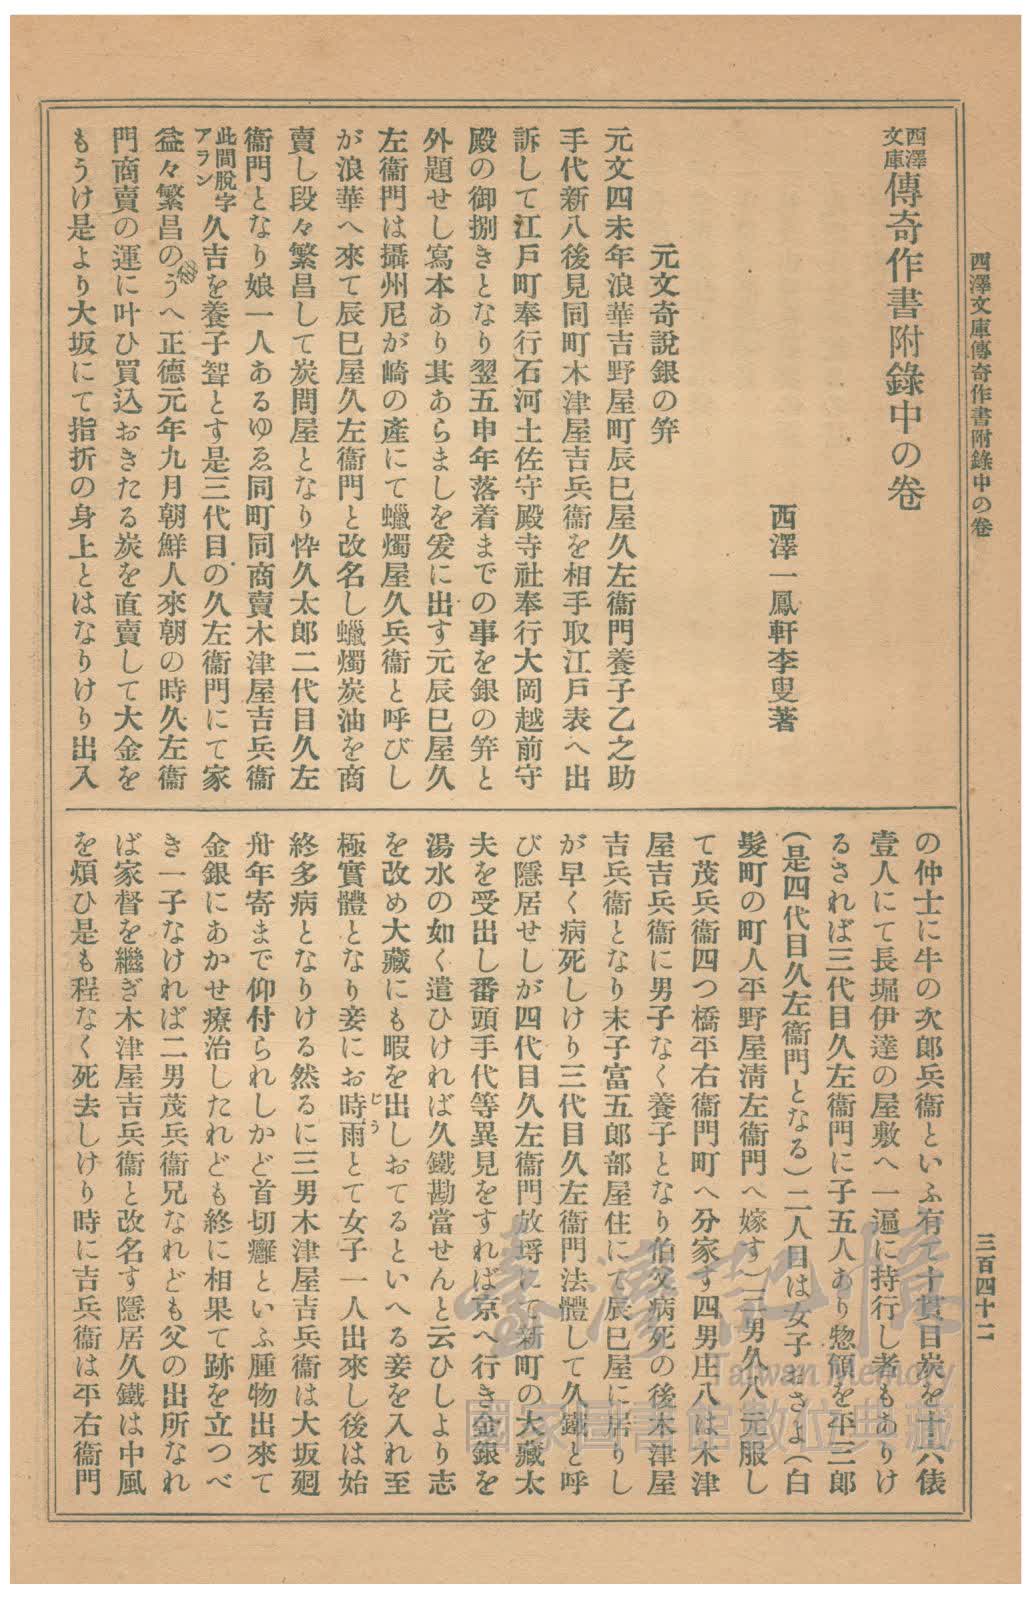 西澤文庫傳奇作書附錄中の卷
三百四十二
西澤文庫傳奇作書附錄中の卷
西澤一鳳軒李叟著
元文奇說銀の笄
元文四未年浪華吉野屋町辰巳屋久左衞門養子乙之助
手代新八後見同町木津屋吉兵衞を相手取江戶表へ出
訴して江戶町奉行石河土佐守殿寺社奉行大岡越前守
殿の御捌きとなり翌五申年落着までの事を銀の笄と
外題せし寫本あり其あらましを爰に出す元辰巳屋久
左衞門は攝州尼が崎の產にて蠟燭屋久兵衞と呼びし
が浪華へ來て辰巳屋久左衞門と改名し蠟燭炭油を商
賣し段々繁昌して炭問屋となり忰久太郎二代目久左
衞門となり娘一人あるゆゑ同町同商賣木津屋吉兵衞
此間脫字アラン久吉を養子聟とす是三代目の久左衞門にて家
益々繁昌のうへ正德元年九月朝鮮人來朝の時久左衞
門商賣の運に叶ひ買込おきたる炭を直賣して大金を
もうけ是より大坂にて指折の身上とはなりけり出入
の仲士に牛の次郎兵衞といふ有て十貫目炭を十六俵
壹人にて長堀伊達の屋敷へ一遍に持行し者もありけ
るされば三代目久左衞門に子五人あり惣領を平三郎
(是四代目久左衞門となる)二人目は女子おさよ(白
髮町の町人平野屋淸左衞門へ嫁す)三男久八元服し
て茂兵衞四つ橋平右衞門町へ分家す四男庄八は木津
屋吉兵衞に男子なく養子となり伯父病死の後木津屋
吉兵衞となり末子富五郎部屋住にて辰巳屋に居りし
が早く病死しけり三代目久左衞門法體して久鐵と呼
び隱居せしが四代目久左衞門放埓にて新町の大藏太
夫を受出し番頭手代等異見をすれば京へ行き金銀を
湯水の如く遣ひければ久鐵勘當せんと云ひしより志
を改め大藏にも暇を出しおてるといへる妾を入れ至
極實體となり妾にお時雨じうとて女子一人出來し後は始
終多病となりける然るに三男木津屋吉兵衞は大坂廻
舟年寄まで仰付られしかど首切癰といふ腫物出來て
金銀にあかせ療治したれども終に相果て跡を立つべ
き一子なければ二男茂兵衞兄なれども父の出所なれ
ば家督を繼ぎ木津屋吉兵衞と改名す隱居久鐵は中風
を煩ひ是も程なく死去しけり時に吉兵衞は平右衞門
臺灣記憶
Taiwan Memory
國家圖書館數位典藏